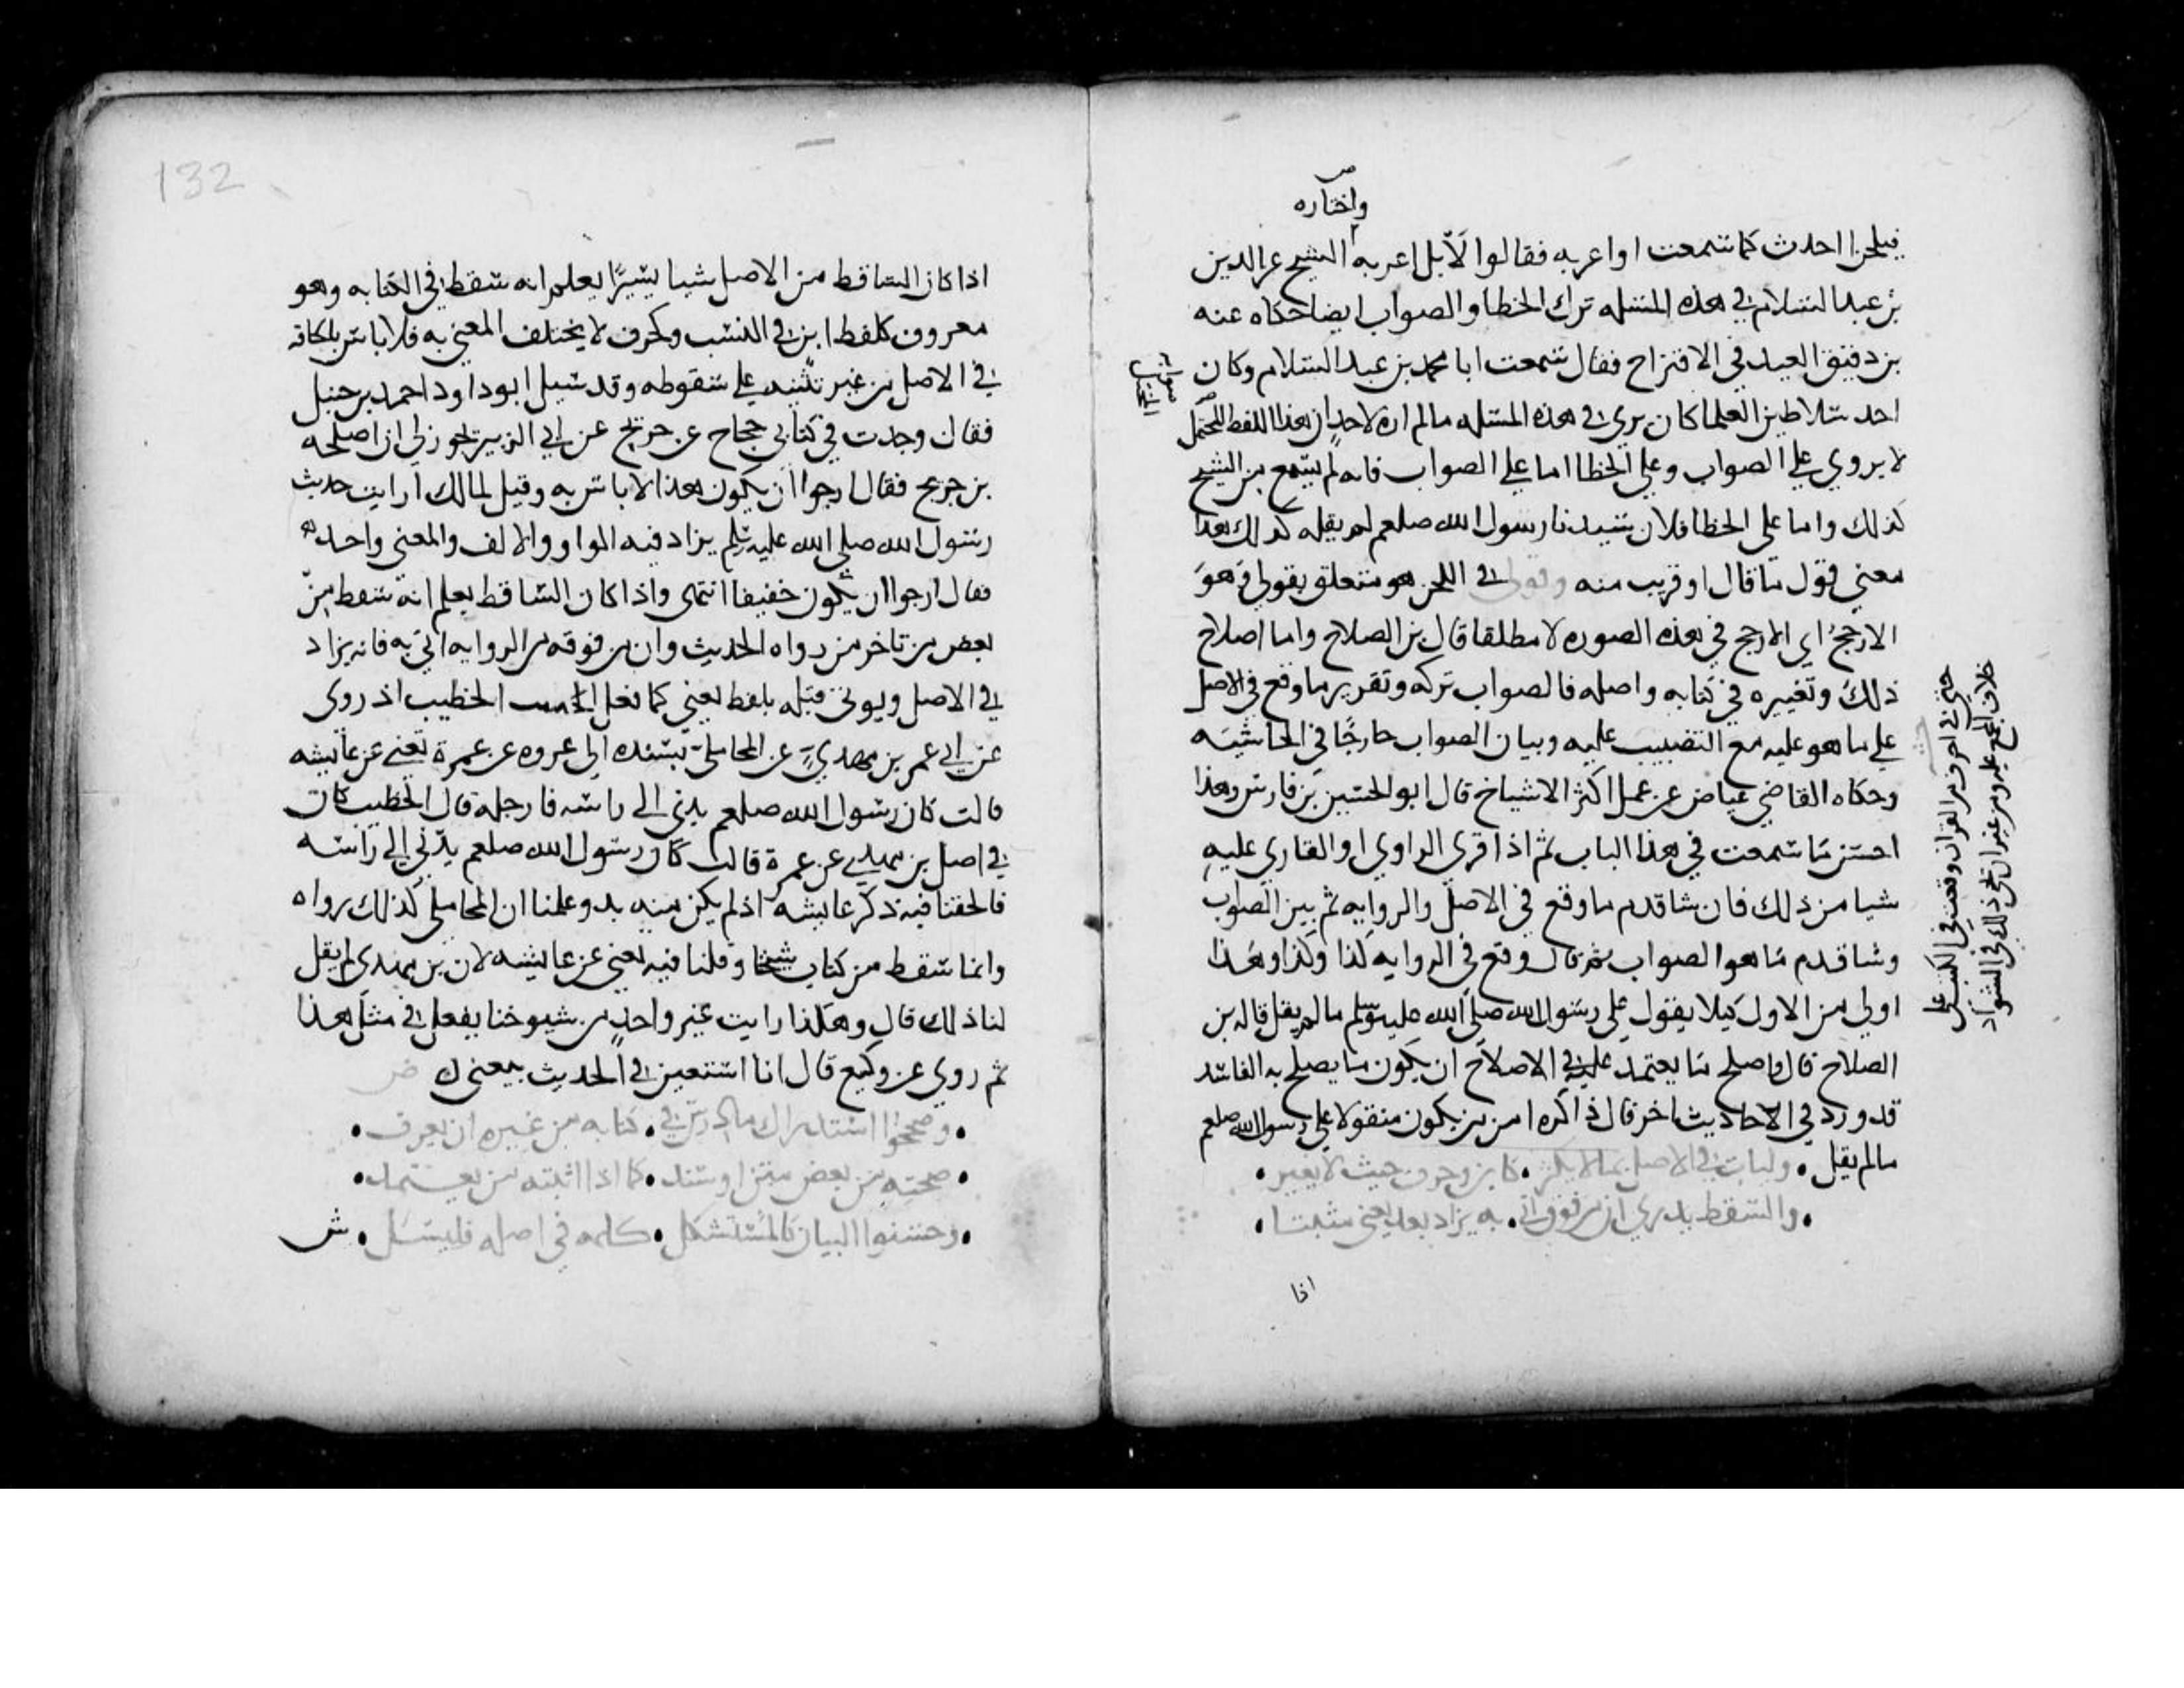 واختاره
فيلحن احدث كما سمعت او اعربه فقالوا لا بل اعربه الشيخ عز الدين
بن عبد السلام في هذه المسله ترك الخطا والصواب ايضا حكاه عنه
بن دقيق العيد في الاقتراح فقال سمعت ابا محمد بن عبد السلام وكان
احد سلاطين العلما كان يرى في هذه المسله ما لم اره لاحد ان هذا اللفظ المحتمل
لا يروي على الصواب وعلى الخطا اما على الصواب فانه لم يسمع من الشيخ
كذلك واما على الخطا فلان سيدنا رسول الله صلعم لم يقله كذلك هذا
معنى قول ما قال او قريب منه وقولي في اللحن هو متعلق بقولي وهو
الارجح اي الارجح في هذه الصوره لا مطلقا قال بن الصلاح واما اصلاح
ذلك وتغييره في كتابه واصله فالصواب تركه وتقرير ما وقع في الاصل
على ما هو عليه مع التضبيب عليه وبيان الصواب خارجًا في الحاشيه
وحكاه القاضي عياض عن عمل اكثر الاشياخ قال ابو الحسين بن فارس وهذا
احسن ما سمعت في هذا الباب ثم اذا قرى الراوي او القاري عليه
شيا من ذلك فان شا قدم ما وقع في الاصل والروايه ثم بين الصواب
وشا قدم ما هو الصواب ثم قال وقع في الروايه كذا وكذا وهذا
اولى من الاول كيلا يقول على رسول الله صلى الله عليه وسلم ما لم يقل قاله بن
الصلاح قال واصلح ما يعتمد عليه في الاصلاح ان يكون ما يصلح به الفاسد
قد ورد في الاحاديث اخر فان ذاكره امن من ان يكون منقولا على رسول الله صلعم
ما لم يقل • وليات في الاصل بما لا يكثر • كابن وحرف حيث لا يغير •
• والسقط يدرى ان من فوق اتى • به يزاد بعد يعني مثبتا •
اذا
حتى في احرف من القران وقعت في الكتب على
خلاف المجمع عليه ومن غير ان يجي ذلك في الشواذ
132
اذا كان الساقط من الاصل شيا يسيرًا يعلم انه سقط في الكتابه وهو
معروف كلفظ ابن في النسب وكحرف لا يختلف المعنى به فلا باس بالحاقه
في الاصل من غير تنبيه على سقوطه وقد سيل ابو داود احمد بن حنبل
فقال وجدت في كتابي حجاج عن جريج عن ابي الزبير يجوز لي ان اصلحه
بن جريج فقال ارجوا ان يكون هذا لا باس به وقيل لمالك ارايت حديث
رسول الله صلى الله عليه وسلم يزاد فيه الواو والالف والمعنى واحد
فقال ارجوا ان يكون خفيفا انتهى واذا كان الساقط يعلم انه سقط من
بعض من تاخر من رواه الحديث وان من فوقه من الروايه اتى به فانه يزاد
في الاصل ويوتى قبله بلفظ يعني كما فعل الخطيب اذ روى
عن ابي عمر بن مهدي عن المحاملي بسنده الى عروه عن عمرة تعني عن عايشه
قالت كان رسول الله صلعم يدني الي راسه فارجله قال الخطيب كان
في اصل بن مهدي عن عمرة قالت كان رسول الله صلعم يدني الي راسه
فالحقنا فيه ذكر عايشه اذ لم يكن منه بد وعلمنا ان المحاملي كذلك رواه
وانما سقط من كتاب شيخنا وقلنا فيه يعني عن عايشه لان بن مهدي لم يقل
لنا ذلك قال وهكذا رايت غير واحد من شيوخنا يفعل في مثل هذا
ثم روي عن وكيع قال انا استعين في الحديث بيعني ك ص
• وصححوا استدراك ما درس في • كتابه من غيره ان يعرف •
• صحته من بعض متن او سند • كما اذا اثبته من يعتمد •
• وحسنوا البيان كالمستشكل • كلمه في اصله فليسل • ش